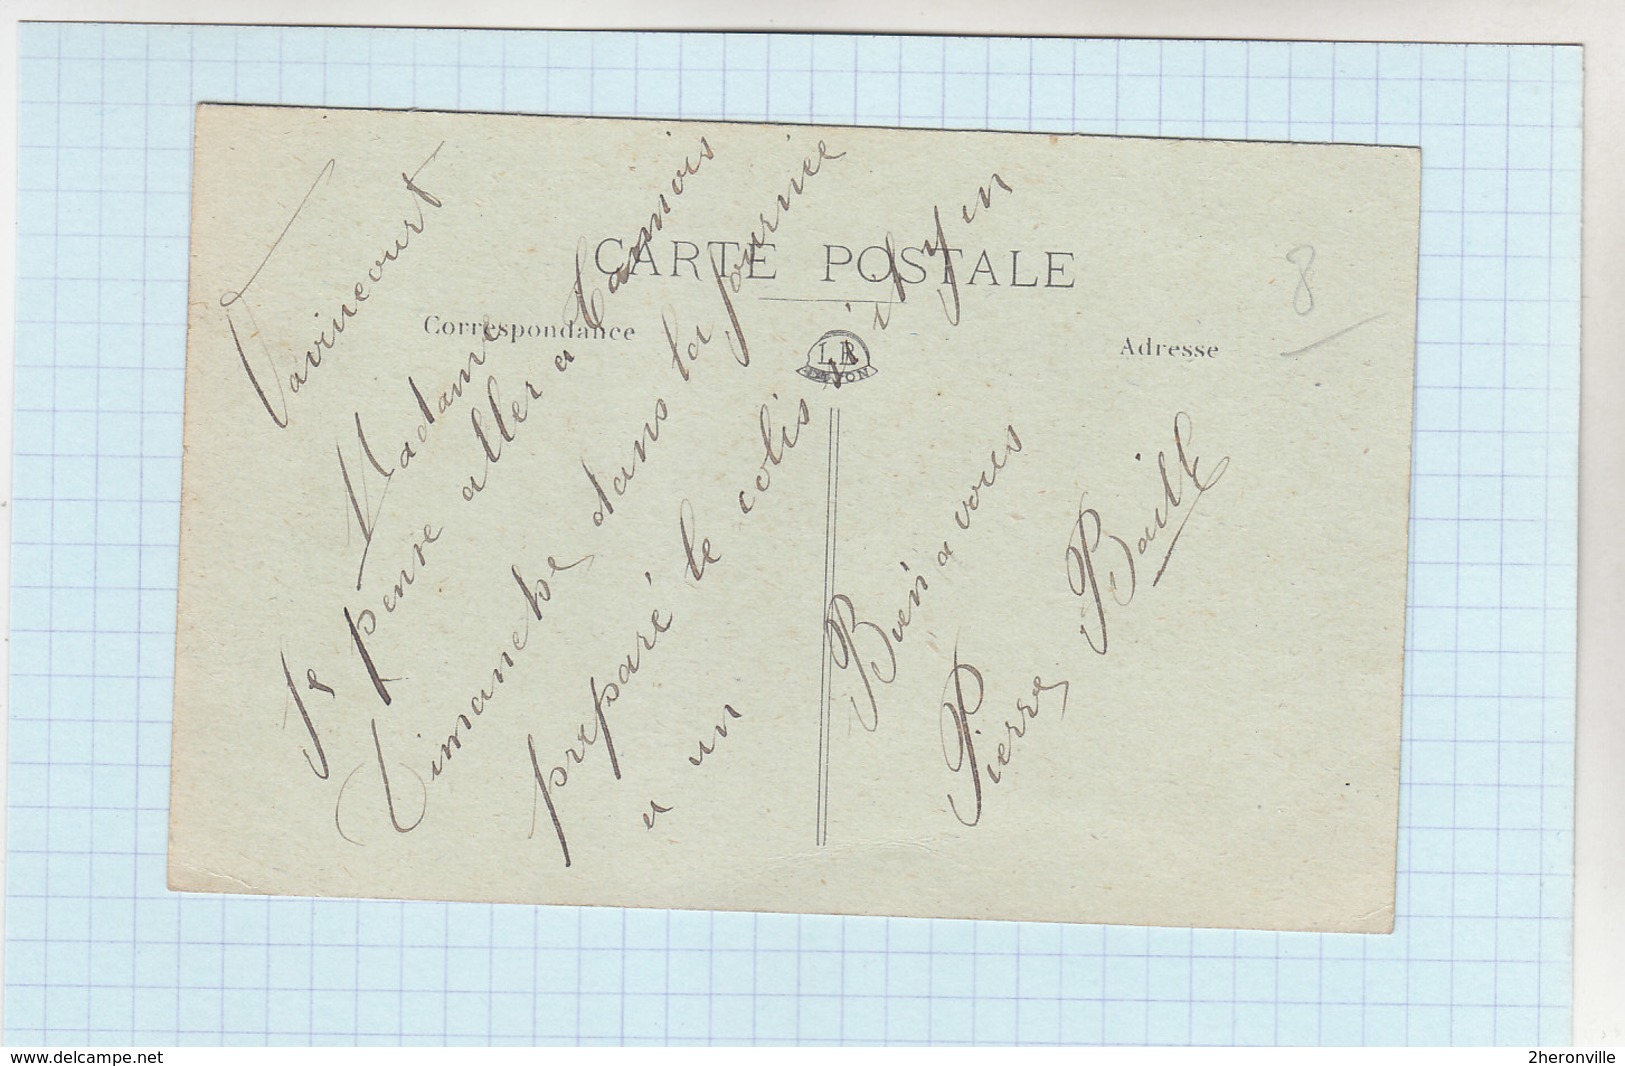 CARTE POSTALE
Correspondance
Adresse
8
LR
DIJON
Vavincourt
Madame
Je pense aller a
Dimanche dans la journée
preparé le colis si il y en
a un
Bien a vous
Pierre Baille
www.delcampe.net
2heronville